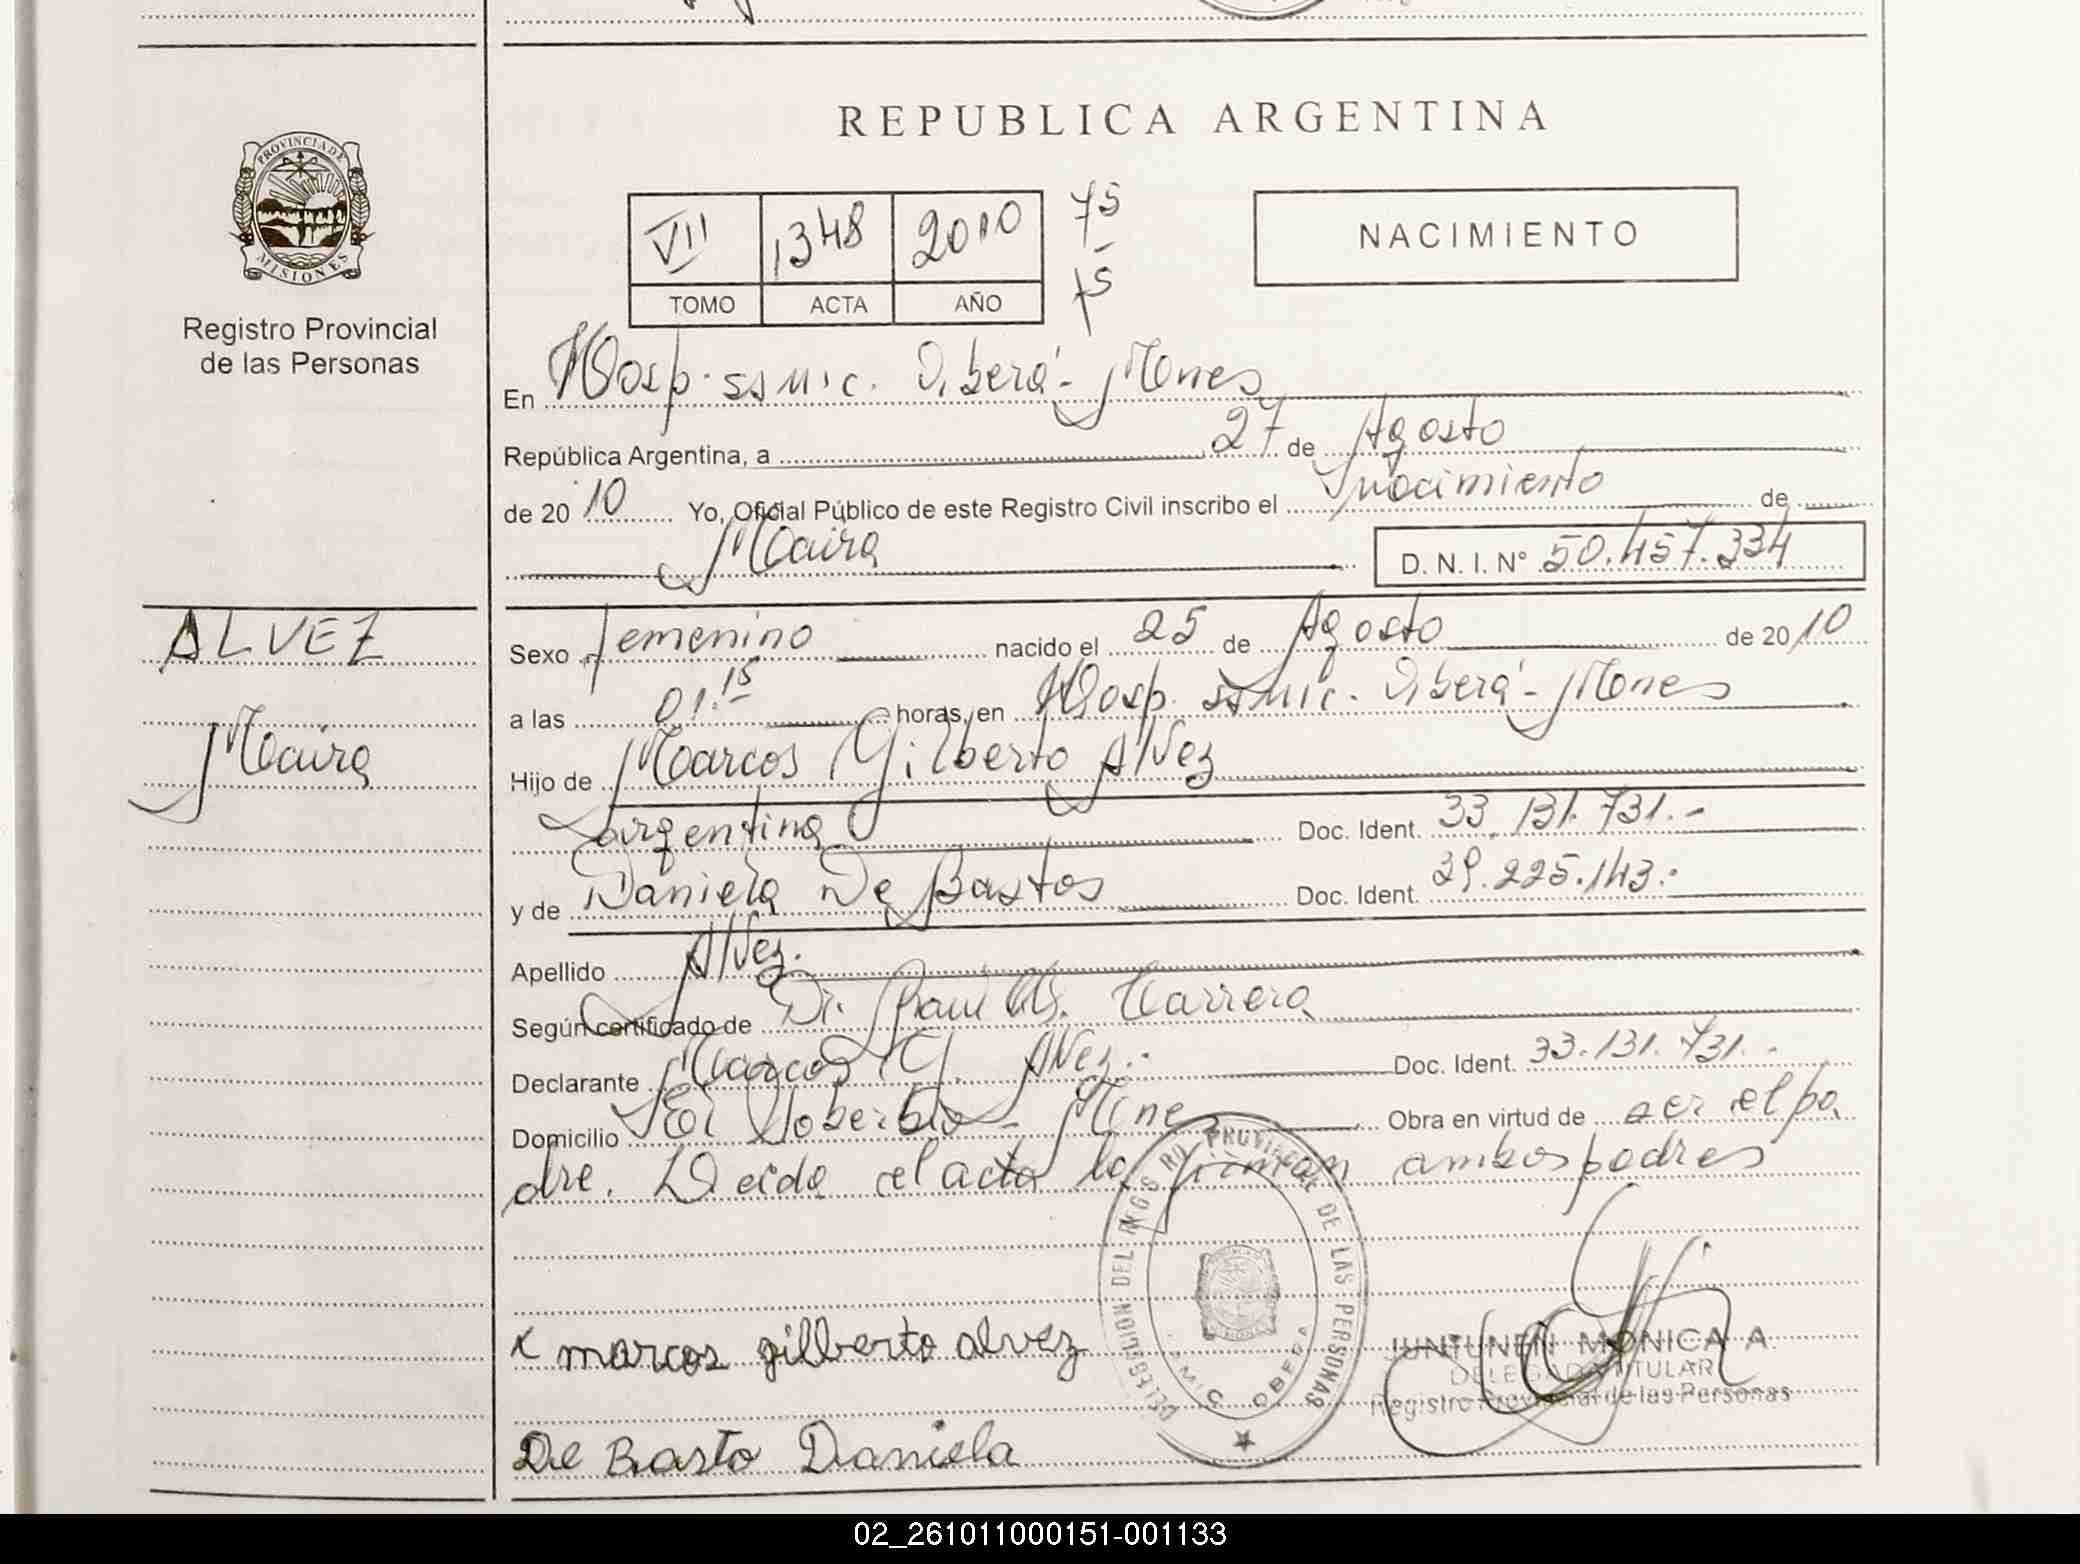 REPUBLICA ARGENTINA
PROVINCIA DE
MISIONES
Registro Provincial
de las Personas
VII 1348 2010
TOMO ACTA AÑO
75
75
NACIMIENTO
En Hosp. SAMIC. Oberá - Mnes
República Argentina, a 27 de Agosto
de 2010 Yo, Oficial Público de este Registro Civil inscribo el nacimiento de
Maira D. N. I. Nº 50.457.334
ALVEZ
Maira
Sexo femenino nacido el 25 de Agosto de 2010
a las 01.15 horas, en Hosp. SAMIC. Oberá - Mnes
Hijo de Marcos Gilberto Alvez
argentina Doc. Ident. 33.131.731.-
y de Daniela De Bastos Doc. Ident. 39.225.143.-
Apellido Alvez.
Según certificado de Dr. Raul Carrera
Declarante Marcos G. Alvez.- Doc. Ident. 33.131.731.-
Domicilio El Soberbio - Mnes Obra en virtud de ser el pa
dre. Leída el acta la firman ambos padres
DELEGACION DEL RGS RO PROVINCIAL DE LAS PERSONAS
SAMIC OBERA
x marcos gilberto alvez
JUNTUNEN MONICA A.
DELEGADA TITULAR
Registro Provincial de las Personas
De Basto Daniela
02_261011000151-001133